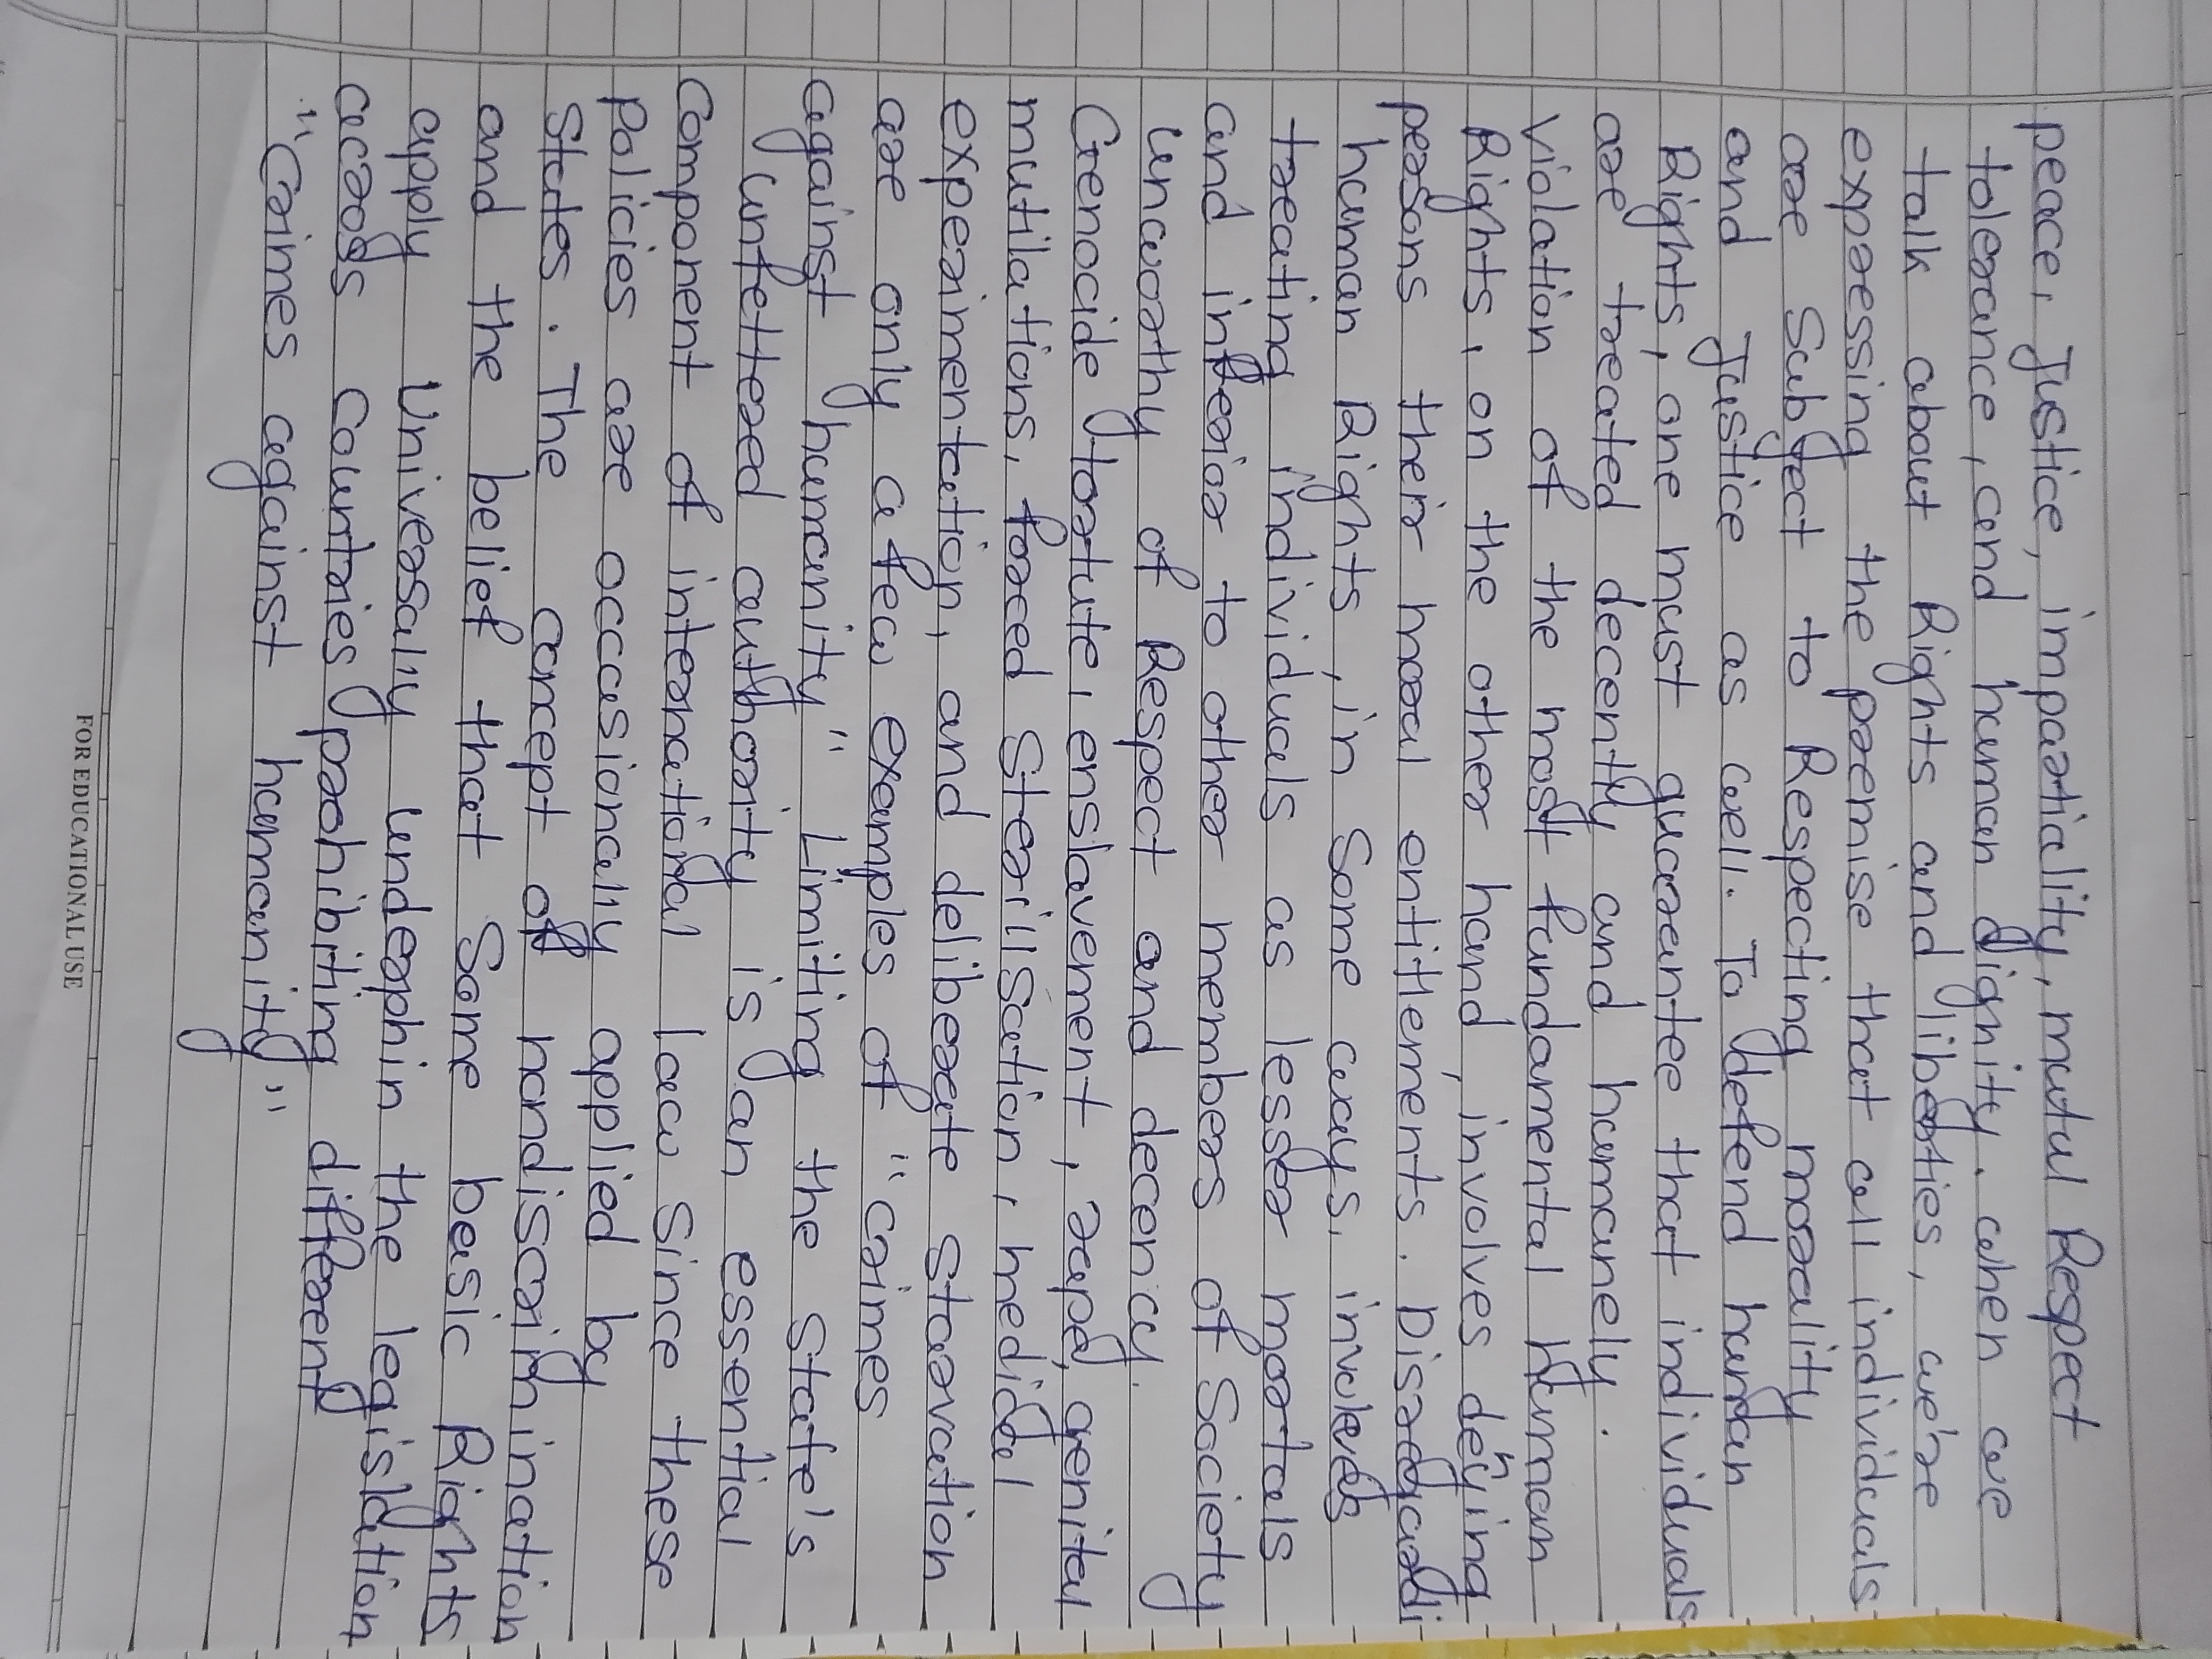 peace, Justice, impartiality, mutul Respect
tolerance, and human dignity. when we
talk about Rights and liberties, we're
expressing the premise that all individuals
are Subject to Respecting morality
and Justice as well. To defend human
Rights, one must guarantee that individuals
are treated decently and humanely.
Violation of the most fundamental human
Rights, on the other hand, involves denying
persons their moral entitlements. Disregardi
human Rights, in Some ways, involves
treating individuals as lesser mortals
and inferior to other members of Society
unworthy of Respect and decency.
Genocide, torture, enslavement, rape, genital
mutilations, forced Sterillsation, medical
experimentation, and deliberate Starvation
are only a few examples of "crimes
against humanity" Limiting the State's
unfettered authority is an essential
component of international law Since these
policies are occasionally applied by
States. The concept of nondiscrimination
and the belief that Some basic Rights
apply Universally underphin the legislation
across Countries prohibiting different
"Crimes against humanity"
FOR EDUCATIONAL USE